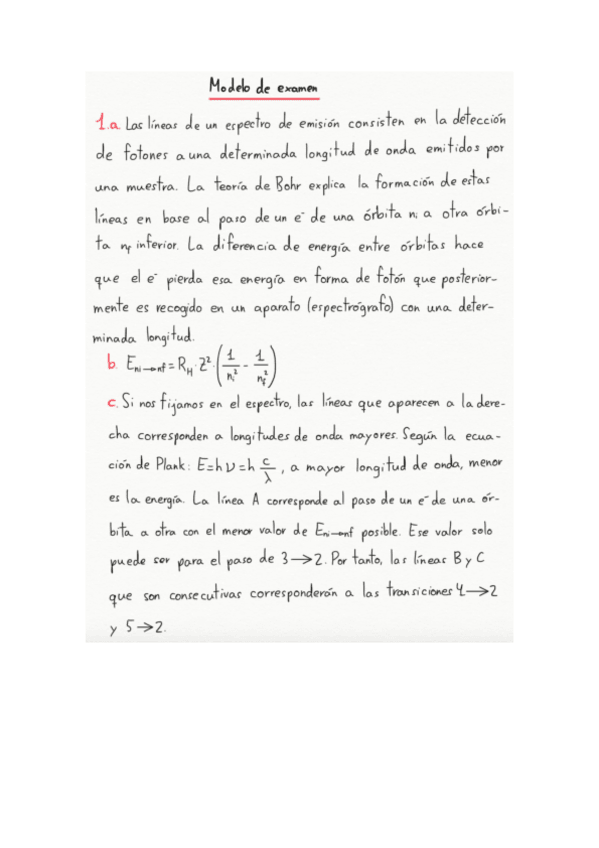 Modelo de examen
1.a Las líneas de un espectro de emisión consisten en la detección
de fotones a una determinada longitud de onda emitidos por
una muestra. La teoría de Bohr explica la formación de estas
líneas en base al paso de un e⁻ de una órbita nᵢ a otra órbi-
ta n_f inferior. La diferencia de energía entre órbitas hace
que el e⁻ pierda esa energía en forma de fotón que posterior-
mente es recogido en un aparato (espectrógrafo) con una deter-
minada longitud.
b. E_{ni→nf} = R_H · Z² · (1/nᵢ² - 1/n_f²)
c. Si nos fijamos en el espectro, las líneas que aparecen a la dere-
cha corresponden a longitudes de onda mayores. Según la ecua-
ción de Plank: E=hν=h c/λ, a mayor longitud de onda, menor
es la energía. La línea A corresponde al paso de un e⁻ de una ór-
bita a otra con el menor valor de E_{ni→nf} posible. Ese valor solo
puede ser para el paso de 3→2. Por tanto, las líneas B y C
que son consecutivas corresponderán a las transiciones 4→2
y 5→2.